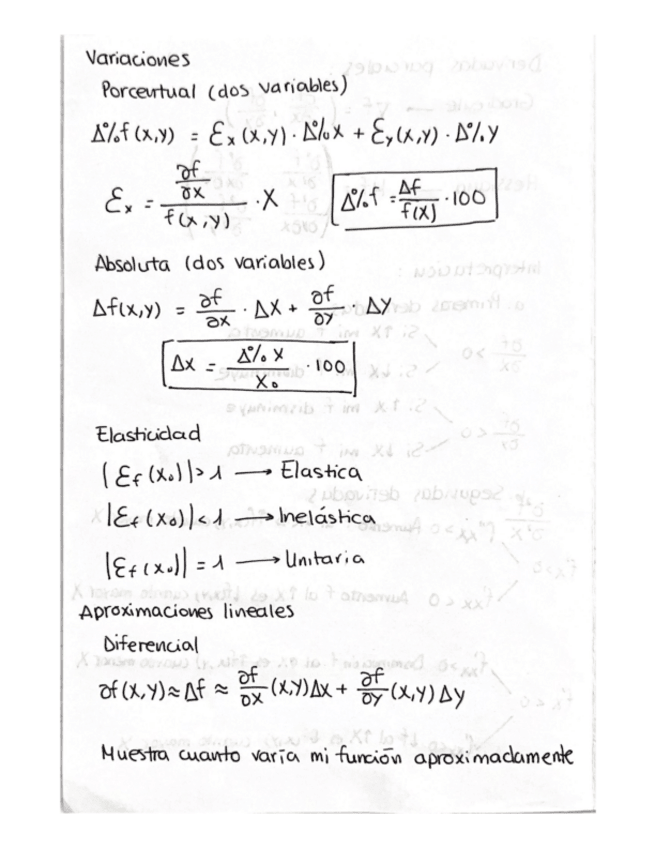 Variaciones
Porcentual (dos variables)
Δ%f(x,y) = Ɛx(x,y)·Δ%x + Ɛy(x,y)·Δ%y
Ɛx = (∂f/∂x)/f(x,y) · X   Δ%f = Δf/f(x) · 100
Absoluta (dos variables)
Δf(x,y) = ∂f/∂x · ΔX + ∂f/∂y · Δy
Δx = Δ%x/x₀ · 100
Elasticidad
|Ɛf(x₀)| > 1 → Elastica
|Ɛf(x₀)| < 1 → Inelástica
|Ɛf(x₀)| = 1 → Unitaria
Aproximaciones lineales
Diferencial
∂f(x,y) ≈ Δf ≈ ∂f/∂x (x,y)Δx + ∂f/∂y (x,y) Δy
Muestra cuanto varía mi función aproximadamente